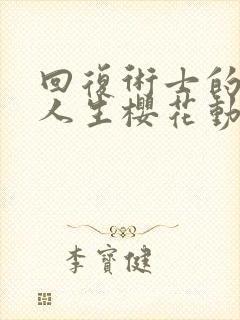 回復術士的
人生櫻花動
李寶健